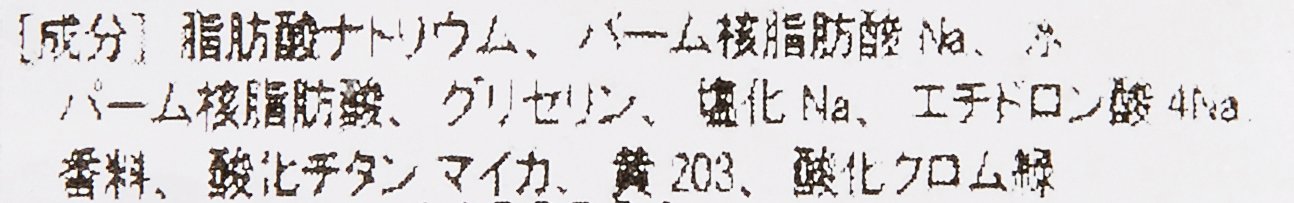 [成分] 脂肪酸ナトリウム、パーム核脂肪酸 Na、水
パーム核脂肪酸、グリセリン、塩化 Na、エチドロン酸 4Na
香料、酸化チタン マイカ、黄 203、酸化クロム緑